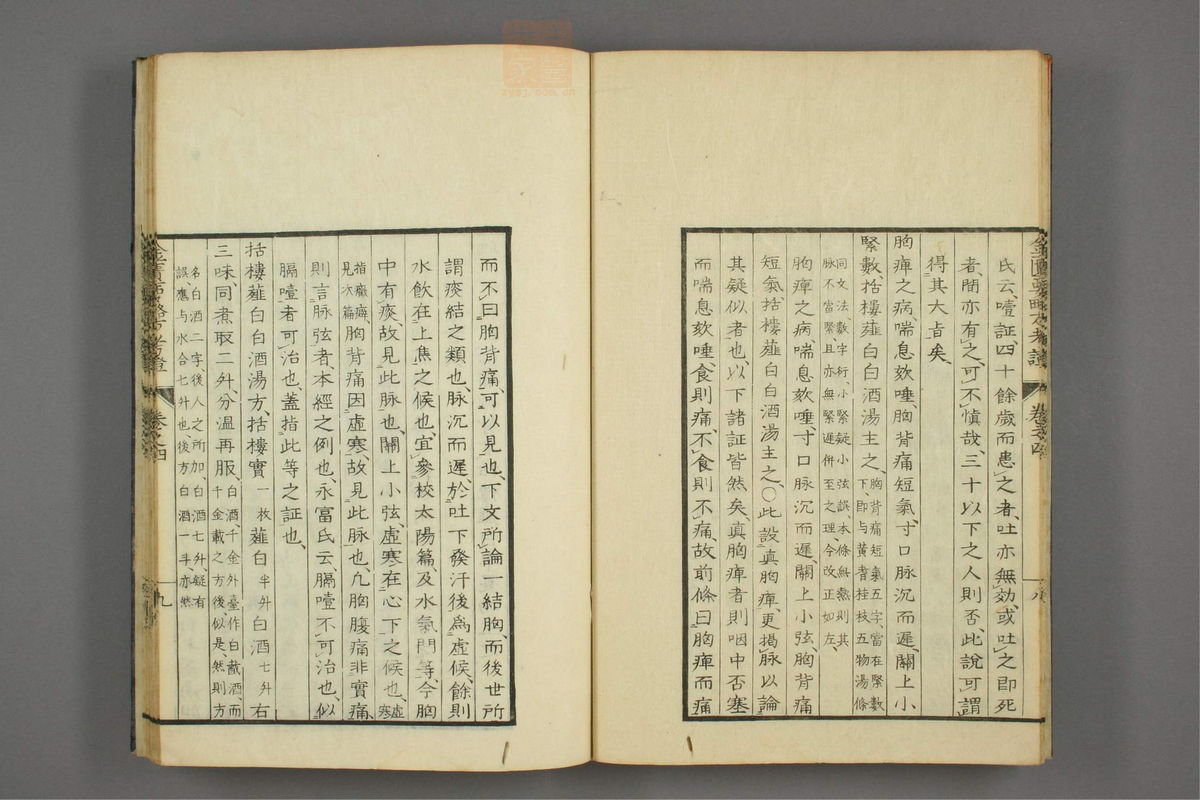 氏云、噎証四十餘歲而患之者、吐亦無効、或吐之即死
者、間亦有之、可不愼哉、三十以下之人則否、此說可謂
得其大旨矣
胸痺之病、喘息欬唾、胸背痛短氣、寸口脉沉而遲、關上小
緊數、括樓薤白白酒湯主之、胸背痛短氣五字、當在緊數
下、即与黄耆桂枝五物湯條
同文法、數字行、小緊疑小弦誤、本條無數、則其
脉不當緊、且亦無緊遲併至之理、今改正如左、
胸痺之病、喘息欬唾、寸口脉沉而遲、關上小弦、胸背痛
短氣、括樓薤白白酒湯主之、○此設眞胸痺、更揭脉以論
其疑似者也、以下諸証皆然矣、眞胸痺者則咽中否塞
而喘息欬唾、食則痛、不食則不痛、故前條曰胸痺而痛
金匱要略方考證 卷之四 八
而不曰胸背痛、可以見也、下文所論一結胸、而後世所
謂痰結之類也、脉沉而遲、於吐下發汗後爲虛候、餘則
水飲在上焦之候也、宜參校太陽篇、及水氣門等、今胸
中有痰、故見此脉也、關上小弦、虛寒在心下之候也、虛寒
指癥癖、
見次篇
胸背痛因虛寒、故見此脉也、凡胸腹痛非實痛、
則言脉弦者、本經之例也、永富氏云、膈噎不可治也、似
膈噎者可治也、蓋指此等之証也、
括樓薤白白酒湯方、括樓實一枚薤白半升白酒七升右
三味、同煮取二升、分溫再服、白酒、千金外臺作白截酒、而
千金載之方後、似是、然則方
名白酒二字、後人之所加、白酒七升、疑有
誤、應与水合七升也、後方白酒一斗、亦然
金匱要略方考證 卷之四 九
zysj.com.cn